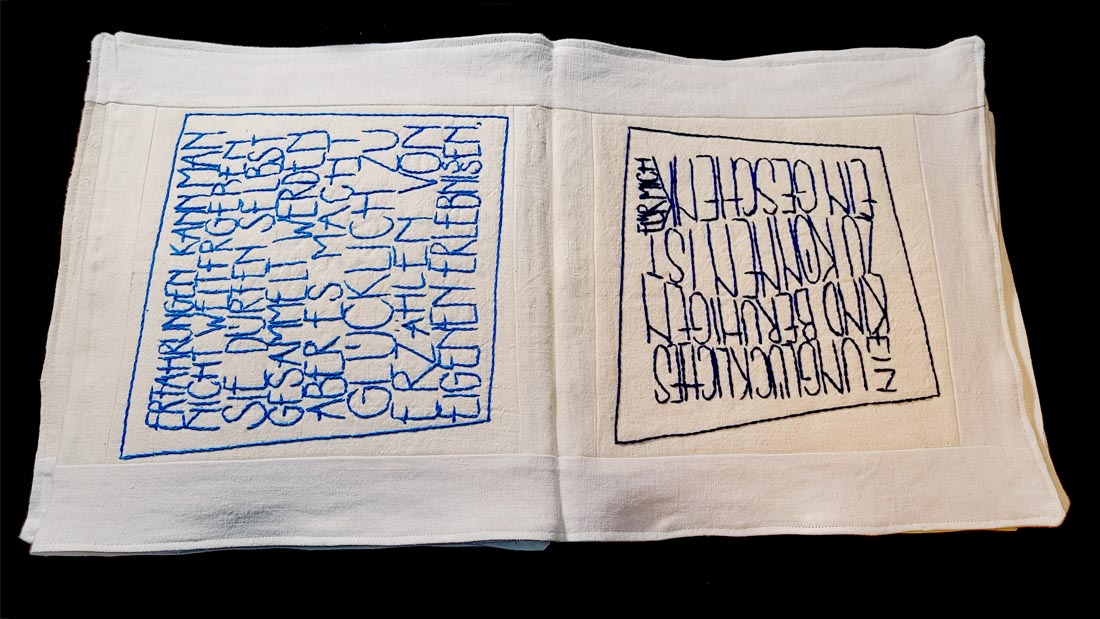 ERFAHRUNGEN KANN MAN
NICHT WEITERGEBEN
SIE DÜRFEN SELBST
GESAMMELT WERDEN
ABER ES MACHT
GLÜCKLICH ZU
ERZÄHLEN VON
EIGENEN ERLEBNISSEN.
EIN
UNGLÜCKLICHES
KIND BERUHIGEN
ZU KÖNNEN IST
EIN GESCHENK
FÜR MICH